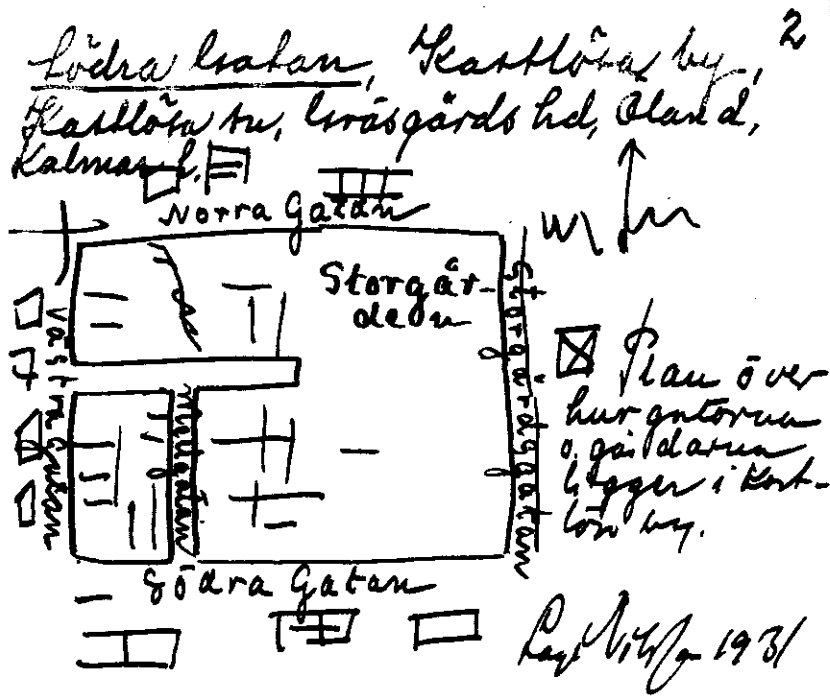 2
Södra Gatan, Kastlösa by,
Kastlösa sn, Gräsgårds hd, Öland,
Kalmar l.
Norra Gatan
Storgår-
den
Västra Gatan
Storgårdsgatan
Plan över
hur gatorna
o. gårdarna
ligger i Kast-
lösa by.
Södra Gatan
1931